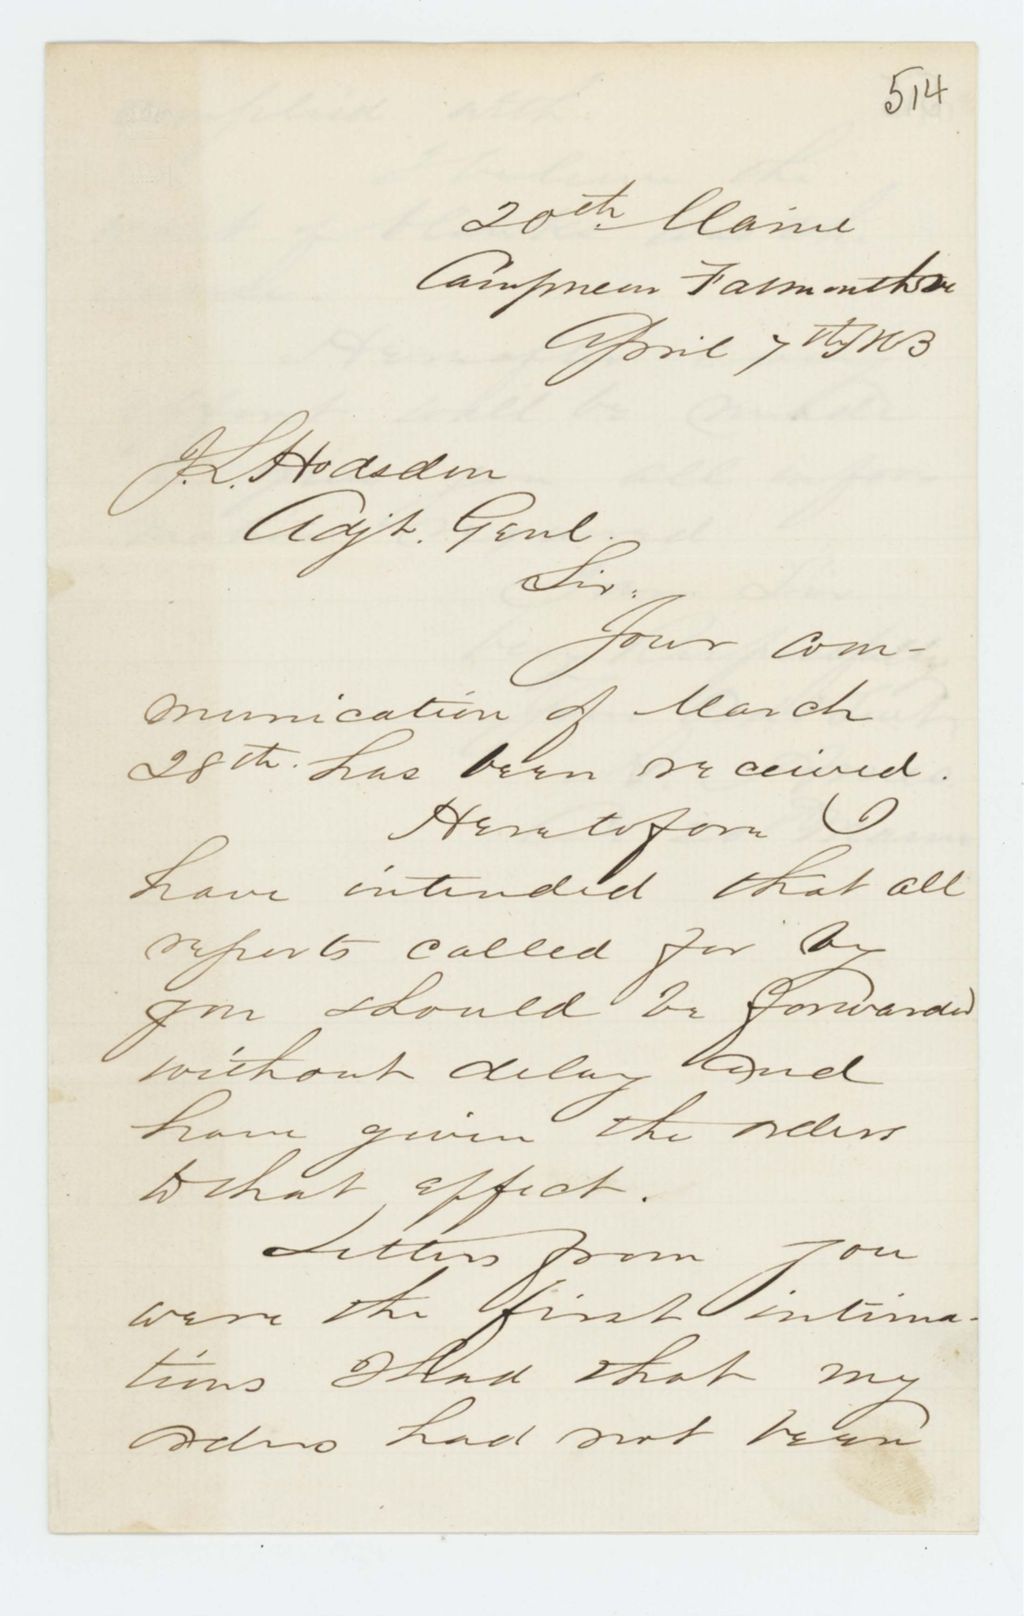 514
20th. Maine
Camp near Falmouth Va
April 7th/63
J. L. Hodsdon
Adjt. Genl.
Sir.
Your com-
munication of March
28th. has been received.
Heretofore I
have intended that all
reports called for by
you should be forwarded
without delay and
have given the orders
to that effect.
Letters from you
were the first intima-
tions I had that my
orders had not been